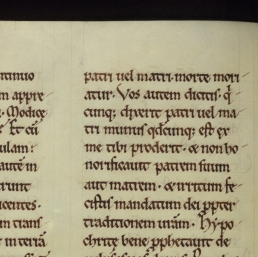 ntinuo
m appre
· Modice
& Et cū
ulam:
autē in
erunt
icentes·
m trans
patri uel matri· morte mori
atur· Vos autem dicitis· q̄
cunq; dixerit patri uel ma
tri munus qdcunq; est ex
me tibi proderit· & non ho
norificauit patrem suum
aut matrem· & irritum fe
cistis mandatum dei ꝓpter
traditionem ur̄am· Hypo
chrite bene ꝓphetauit de